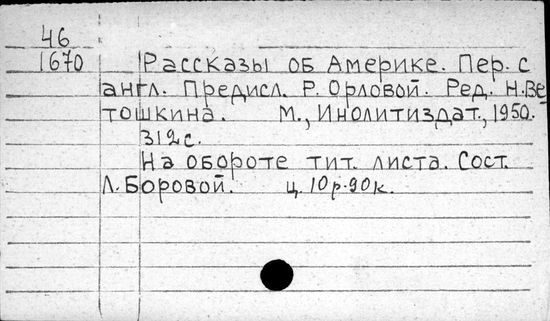 46
1670 Рассказы об Америке. Пер. с
англ. Предисл. Р. Орловой. Ред. Н. Ве-
тошкина. М., Инолитиздат, 1950.
312 с.
На обороте тит. листа. Сост.
Л. Боровой. ц. 10 р. 90 к.